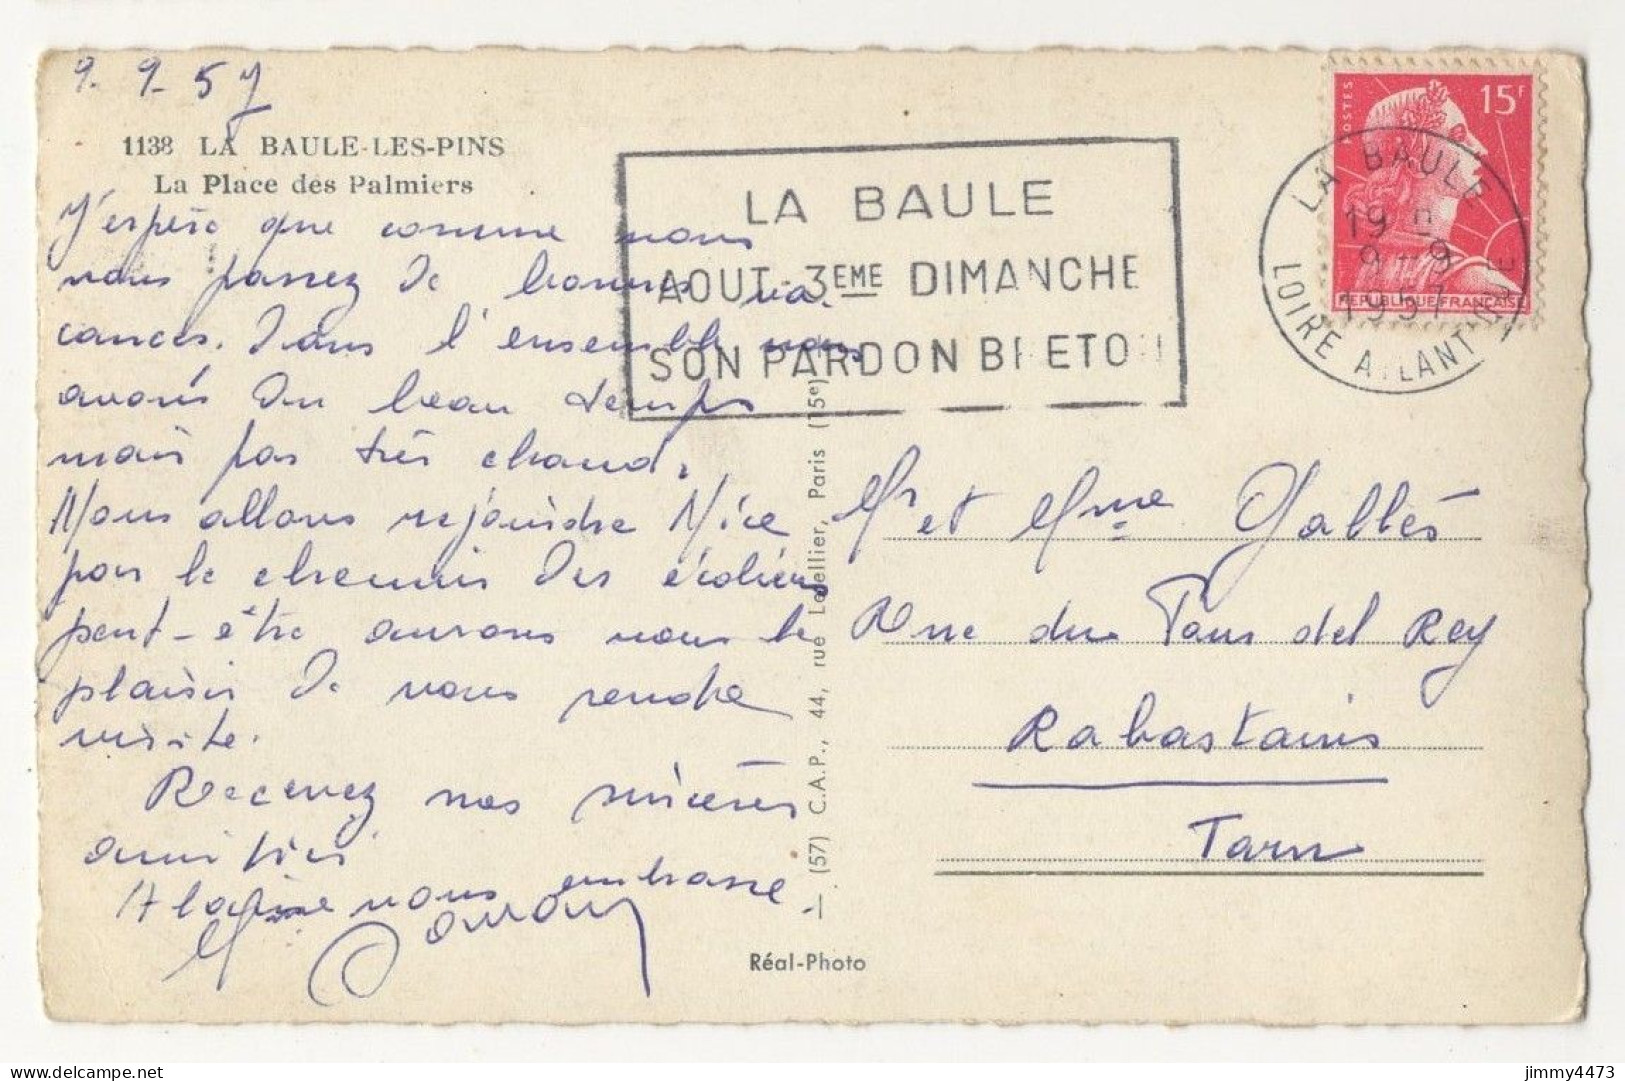 9. 9. 57
1138 LA BAULE-LES-PINS
La Place des Palmiers
J'espère que comme nous
vous passez de bonnes va-
cances. Dans l'ensemble nous
avons du beau temps
mais pas très chaud.
Nous allons rejoindre Nice
par le chemin des écoliers
peut-être aurons nous le
plaisir de vous rendre
visite.
Recevez nos sincères
amitiés
vous embrasse
LA BAULE
AOUT-3EME DIMANCHE
SON PARDON BRETON
POSTES
15F
REPUBLIQUE FRANÇAISE
LA BAULE
19 H
9 - 9
1957
LOIRE ATLANTIQUE
Mr et Mme Galtés
Rue du Pour del Rey
Rabastains
Tarn
(57) C.A.P., 44, rue Letellier, Paris (15e)
Réal-Photo
delcampe.net
jimmy4473